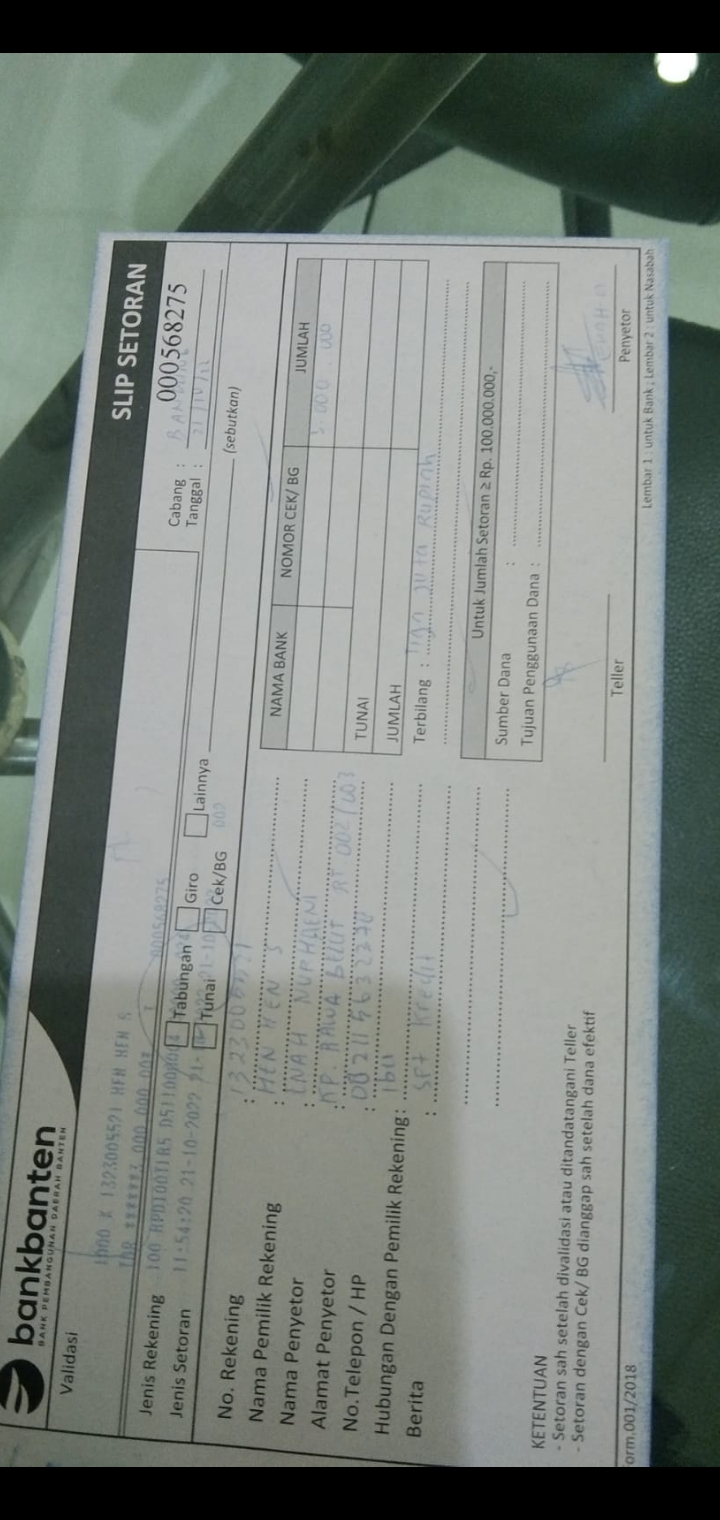 bankbanten
BANK PEMBANGUNAN DAERAH BANTEN
SLIP SETORAN
Validasi
000568275
1000 K 1323005521 HEN HEN S
IDR ******3,000,000.00
000568275
Cabang : BANDUNG
Tanggal : 21/10/22
Jenis Rekening
Tabungan Giro Lainnya
Jenis Setoran 11:54:20 21-10-2022
Tunai Cek/BG (sebutkan)
No. Rekening :
Nama Pemilik Rekening : HEN HEN S
Nama Penyetor : ENAH NURHAENI
Alamat Penyetor : KP. RAWA BELUT RT 002/003
No.Telepon / HP :
Hubungan Dengan Pemilik Rekening : ibu
Berita : SFt Kredit
NAMA BANK NOMOR CEK/ BG JUMLAH
3.000.000
TUNAI
JUMLAH
Terbilang : Tiga Juta Rupiah
Untuk Jumlah Setoran ≥ Rp. 100.000.000,-
Sumber Dana :
Tujuan Penggunaan Dana :
KETENTUAN
- Setoran sah setelah divalidasi atau ditandatangani Teller
- Setoran dengan Cek/ BG dianggap sah setelah dana efektif
Teller
Penyetor
orm.001/2018
Lembar 1 : untuk Bank ; Lembar 2 : untuk Nasabah